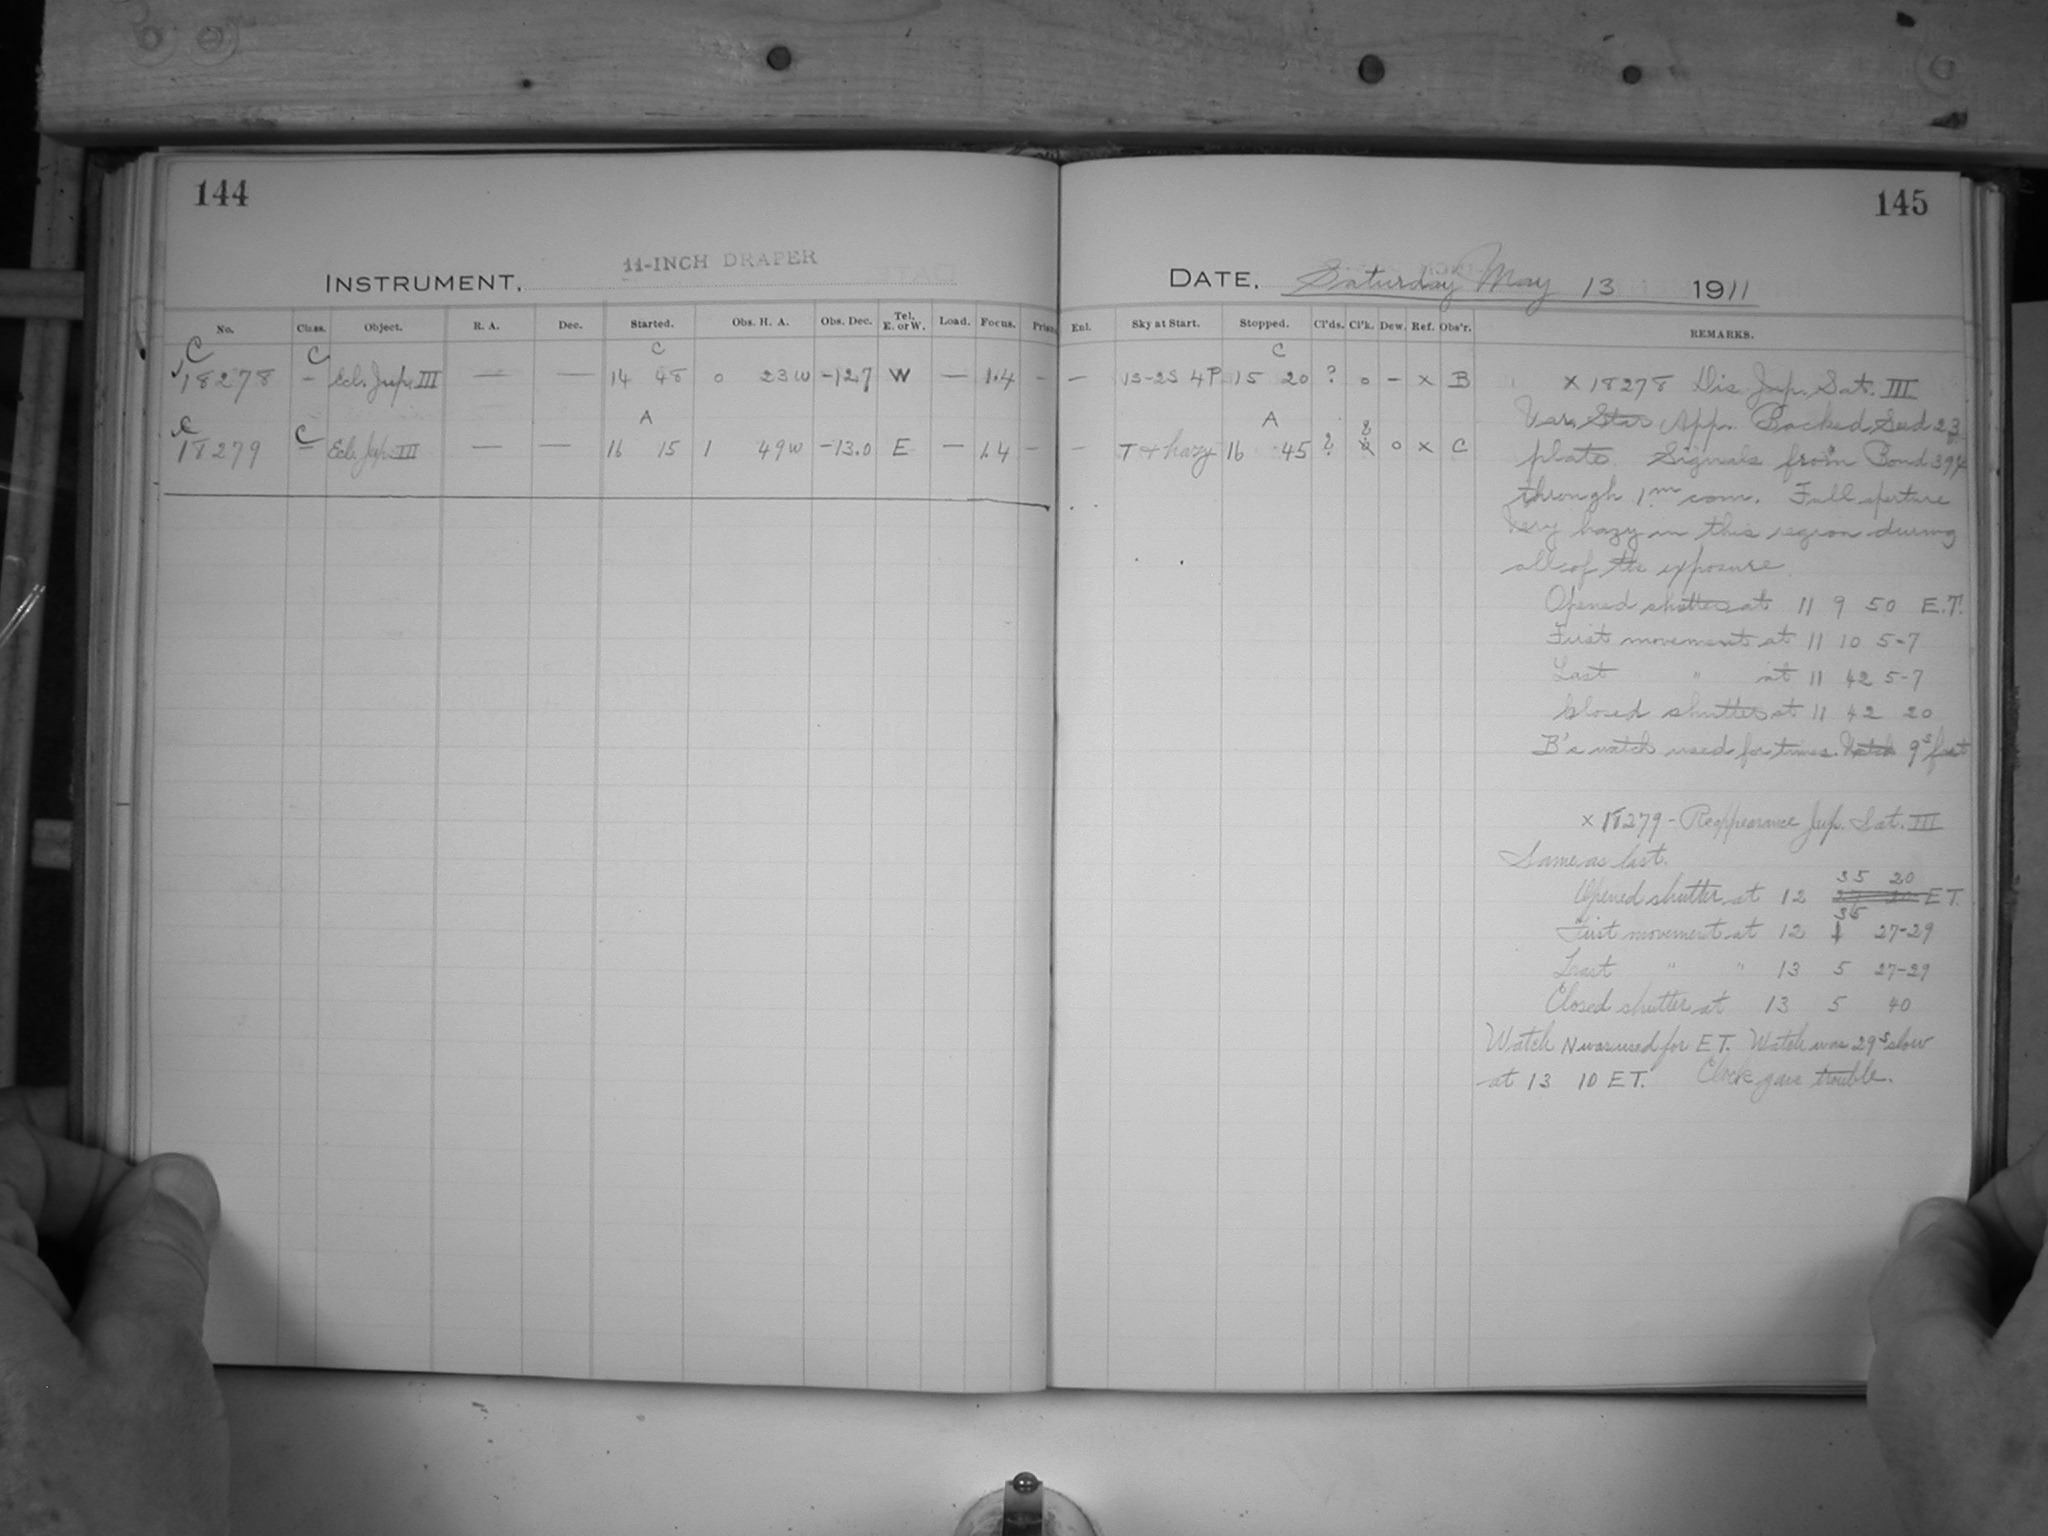 144
145
INSTRUMENT, 11-INCH DRAPER
DATE, Saturday May 13 1911
No. Class. Object. R. A. Dec. Started. Obs. H. A. Obs. Dec. Tel. E. or W. Load. Focus. Prism. Enl. Sky at Start. Stopped. Cl'ds. Cl'k. Dew. Ref. Obs'r. REMARKS.
C C C C
18278 – Ecl. Jup. III — — 14 48 0 23 W –12.7 W — 1.4 – — 1S-2S 4P 15 20 ? 0 – x B
C C A A
18279 – Ecl. Jup. III — — 16 15 1 49 W –13.0 E — 1.4 – — T + hazy 16 45 ? 0 x C
x 18278 Dis. Jup. Sat. III
Var. Star App. Backed Seed 23
plate. Signals from Bond 394
through 1m com. Full aperture
Very hazy in this region during
all of the exposure
Opened shutter at 11 9 50 E.T.
First movement at 11 10 5-7
Last " at 11 42 5-7
Closed shutter at 11 42 20
B's watch used for times. Watch 9s fast
x 18279 - Reappearance Jup. Sat. III
Same as last.
35 20
Opened shutter at 12 E T.
35
First movement at 12 27-29
Last " " 13 5 27-29
Closed shutter at 13 5 40
Watch N was used for E T. Watch was 29s slow
at 13 10 E T. Clock gave trouble.